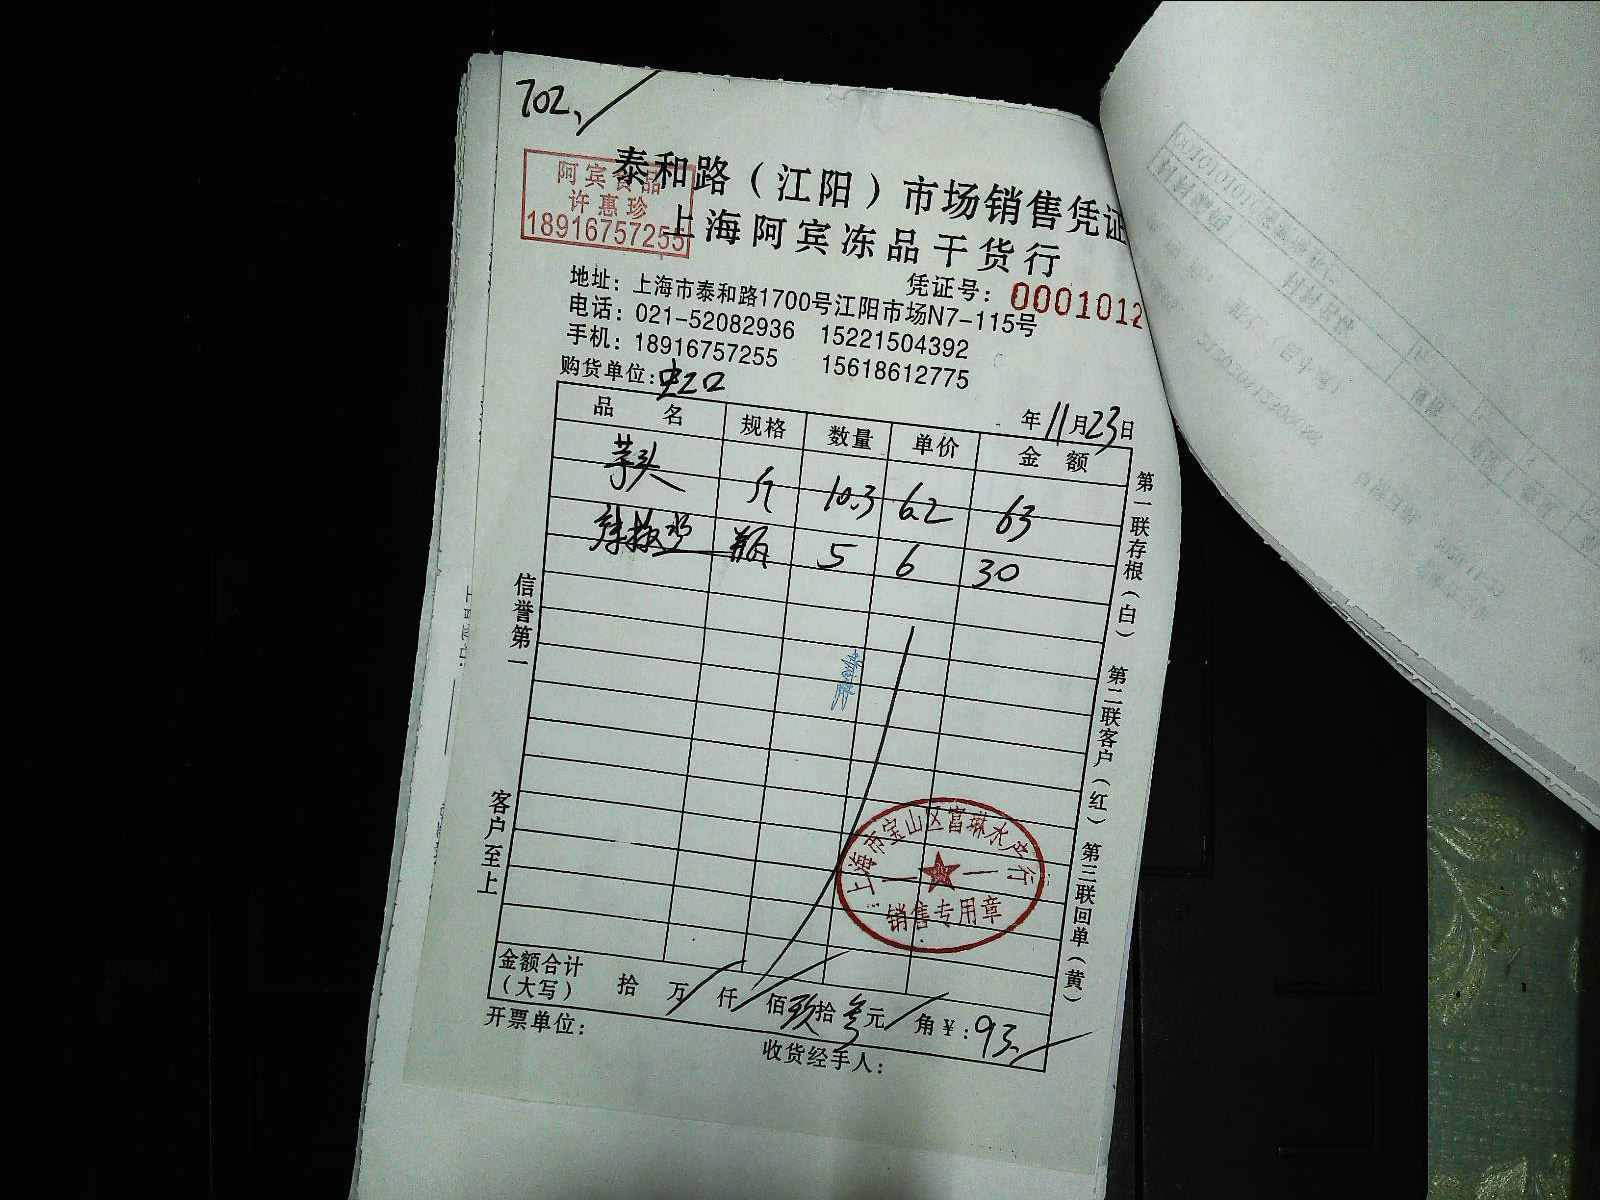 702、
泰和路（江阳）市场销售凭证
阿宾食品
许惠珍
18916757255
上海阿宾冻品干货行
凭证号：0001012
地址：上海市泰和路1700号江阳市场N7-115号
电话：021-52082936 15221504392
手机：18916757255 15618612775
购货单位：虹口
年11月23日
品名 规格 数量 单价 金额
芋头 斤 10.3 6.2 63
辣椒 瓶 5 6 30
信誉第一
客户至上
第一联存根（白） 第二联客户（红） 第三联回单（黄）
上海市宝山区富琳水产行
销售专用章
金额合计（大写） 拾 万 仟 佰 玖拾叁元 角 ¥：93.
开票单位：
收货经手人：